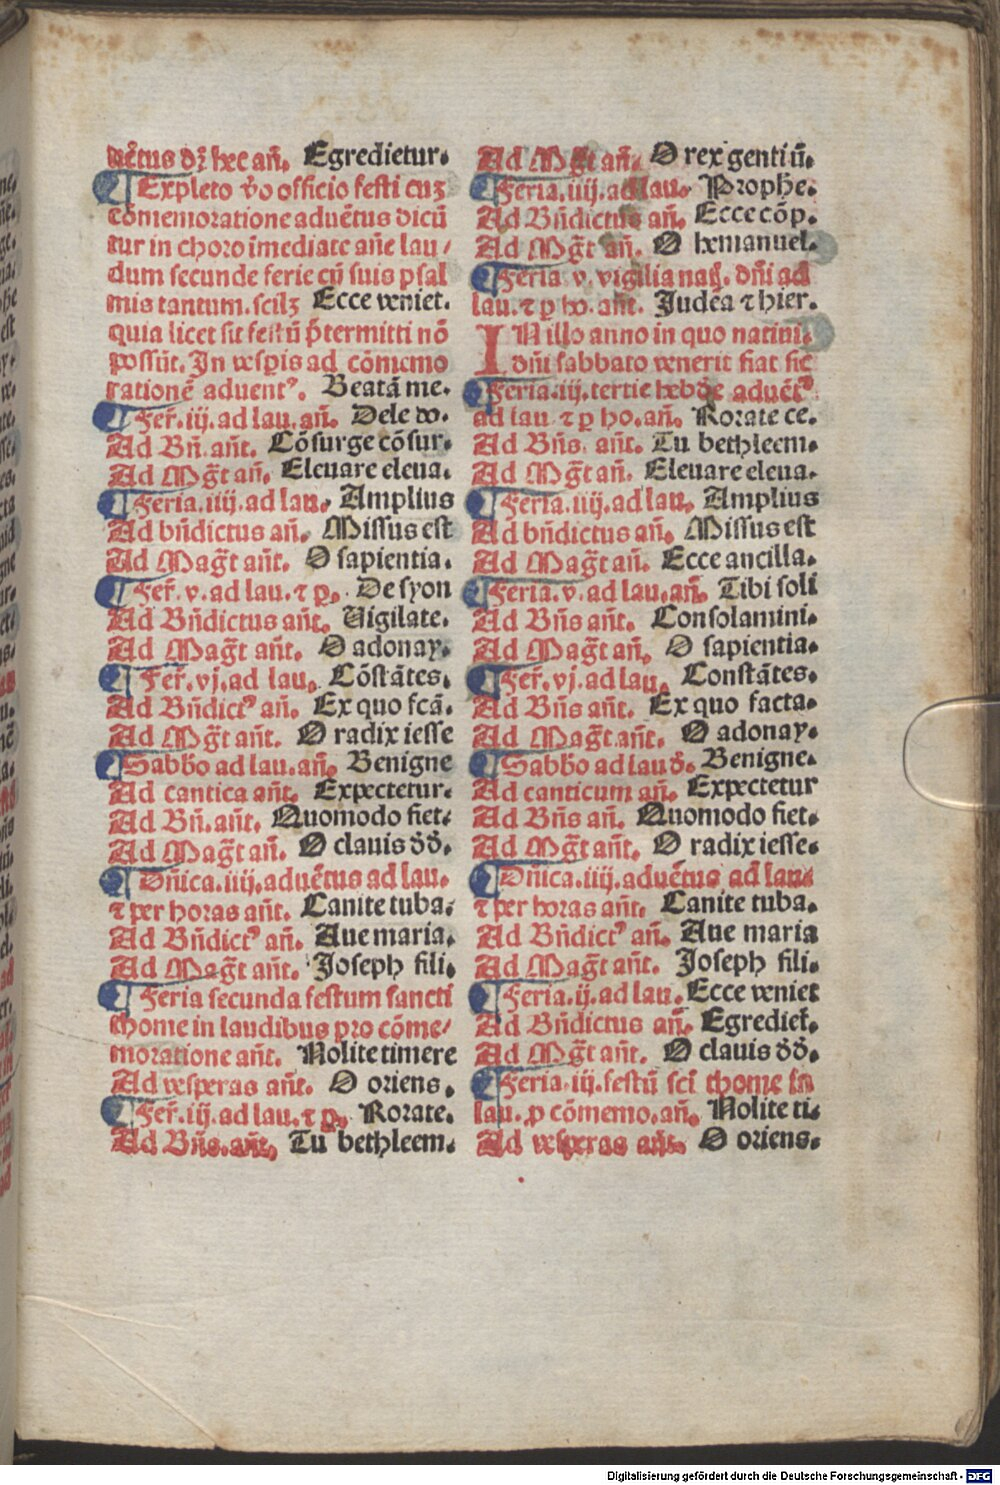 uẽtus dꝛ̃ hec añ. Egredietur.
¶ Expleto v̄o officio festi cuʒ
cõmemoratione aduẽtus dicũ
tur in choro ĩmediate añe lau/
dum secunde ferie cũ suis psal
mis tantum. scilʒ Ecce veniet.
quia licet sit festũ p̃termitti nõ
possũt. In vesꝑis ad cõmemo
rationẽ aduentꝰ. Beatã me.
¶ Fer̃. iij. ad lau. añ. Dele do.
Ad Bñ. añt. Cõsurge cõsur.
Ad Mag̃t añ. Eleuare eleua.
¶ Feria. iiij. ad lau. Amplius
Ad bñdictus añ. Missus est
Ad Mag̃t añt. O sapientia.
¶ Fer̃. v. ad lau. ⁊ ꝑ. De syon
Ad Bñdictus añt. Uigilate.
Ad Mag̃t añt. O adonay.
¶ Fer̃. vj. ad lau. Cõstãtes.
Ad Bñdictꝰ añ. Ex quo fcã.
Ad Mg̃t añt. O radix iesse
¶ Sabbo ad lau. añ. Benigne
Ad cantica añt. Expectetur.
Ad Bñ. añt. Quomodo fiet.
Ad Mag̃t añ. O clauis dd̃.
¶ Dñica. iiij. aduẽtus ad lau.
⁊ per horas añt. Canite tuba.
Ad Bñdictꝰ añ. Aue maria.
Ad Mag̃t añt. Joseph fili.
¶ Feria secunda festum sancti
thome in laudibus pro cõme/
moratione añt. Nolite timere
Ad vesperas añt. O oriens.
¶ Fer̃. iij. ad lau. ⁊ ꝑ. Rorate.
Ad Bñs. añt. Tu bethleem.
Ad Mg̃t añ. O rex gentiũ.
¶ Feria. iiij. ad lau. Prophe.
Ad Bñdictus añ. Ecce cõp.
Ad Mg̃t añ. O hemanuel.
¶ Feria v. vigilia naţ. dñi ad
lau. ⁊ ꝑ ho. añt. Judea ⁊ hier.
IN illo anno in quo natiui.
dñi sabbato venerit fiat sic
¶ Feria. iij. tertie hebde aduẽtꝰ
ad lau ⁊ ꝑ ho. añ. Rorate ce.
Ad Bñs. añt. Tu bethleem.
Ad Mag̃t añ. Eleuare eleua.
¶ Feria. iiij. ad lau. Amplius
Ad bñdictus añ. Missus est
Ad Mag̃t añ. Ecce ancilla.
¶ Feria. v. ad lau. añ. Tibi soli
Ad Bñs añt. Consolamini.
Ad Mag̃t añ. O sapientia.
¶ Fer̃. vj. ad lau. Constãtes.
Ad Bñs añt. Ex quo facta.
Ad Mag̃t añt. O adonay.
¶ Sabbo ad laud̃. Benigne.
Ad canticum añ. Expectetur
Ad Bñs añ. Quomodo fiet.
Ad Mg̃t añt. O radix iesse.
¶ Dñica. iiij. aduẽtus ad lau
⁊ per horas añt. Canite tuba.
Ad Bñdictꝰ añ. Aue maria
Ad Mag̃t añt. Joseph fili.
¶ Feria. ij. ad lau. Ecce veniet
Ad Bñdictus añ. Egrediet̃.
Ad Mg̃t añt. O clauis dd̃.
¶ Feria. iij. festũ sci thome in
lau. ꝑ cõmemo. añ. Nolite ti.
Ad vesperas añt. O oriens.
Digitalisierung gefördert durch die Deutsche Forschungsgemeinschaft - DFG